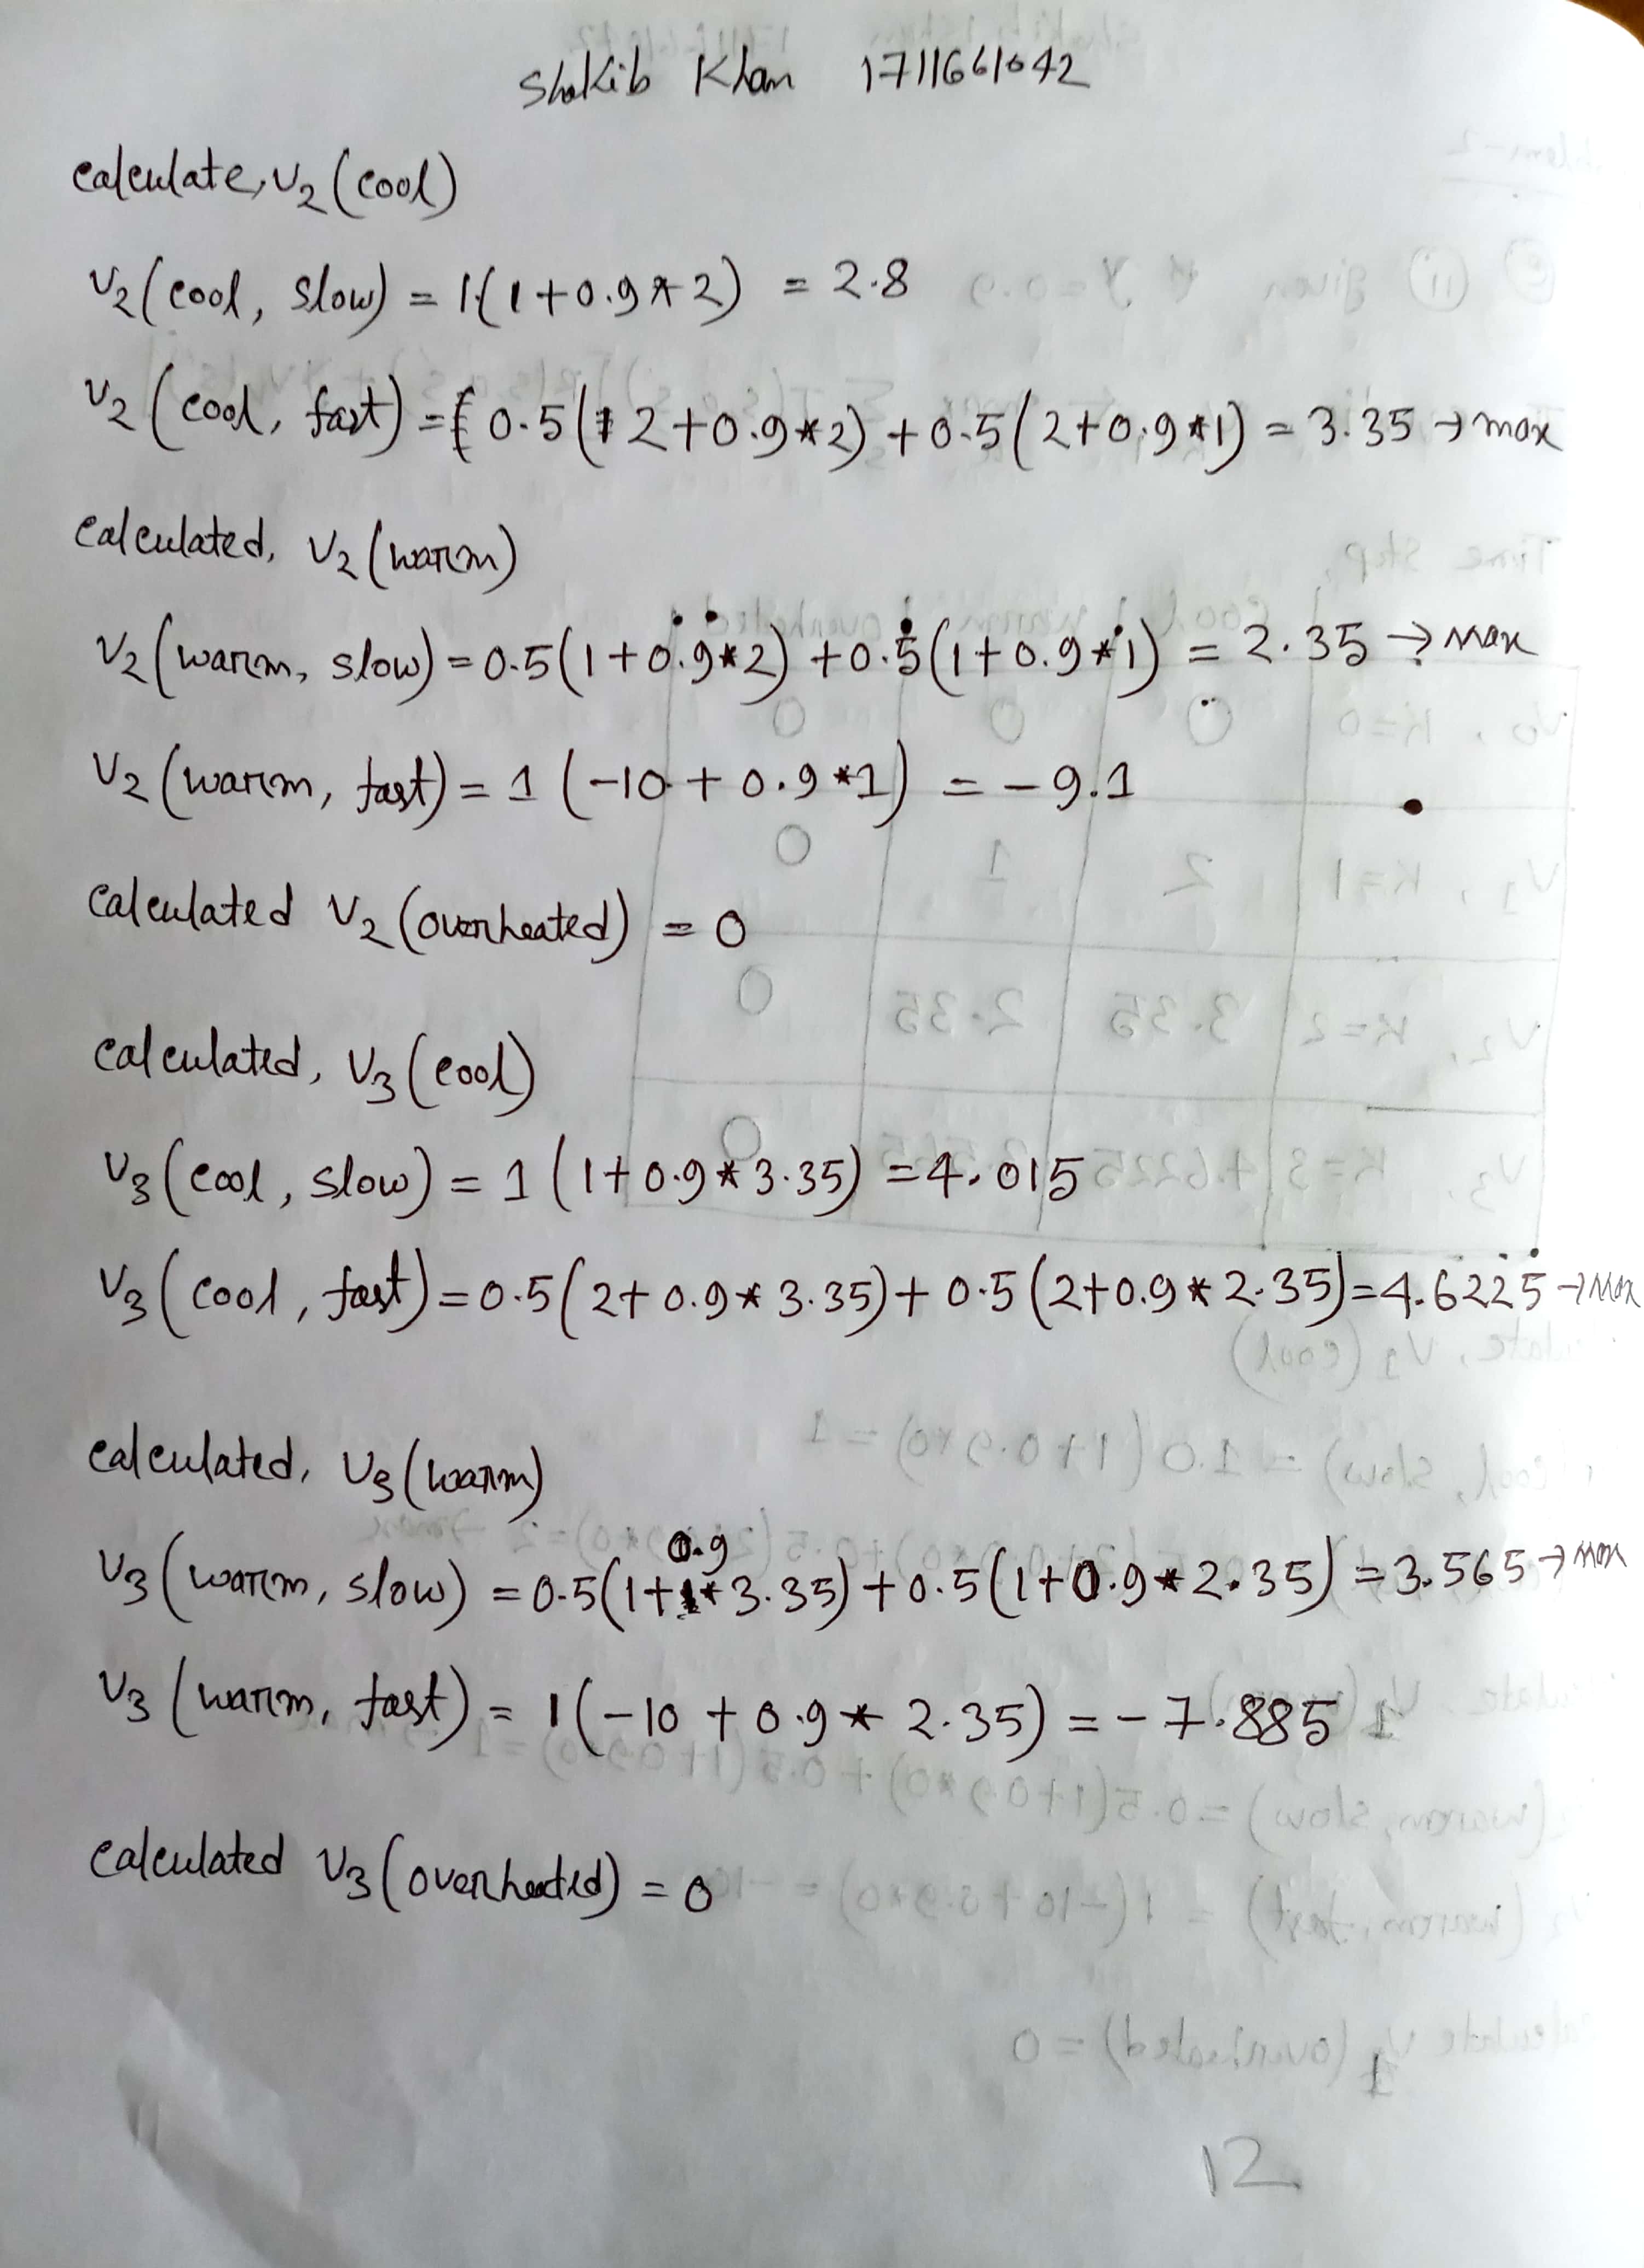 Shakib Khan 1711661042
calculate, V2 (cool)
V2 (cool, slow) = 1(1+0.9*2) = 2.8
V2 (cool, fast) = 0.5(2+0.9*2) + 0.5(2+0.9*1) = 3.35 → max
calculated, V2 (warm)
V2 (warm, slow) = 0.5(1+0.9*2) + 0.5(1+0.9*1) = 2.35 → max
V2 (warm, fast) = 1 (-10 + 0.9*1) = -9.1
calculated V2 (overheated) = 0
calculated, V3 (cool)
V3 (cool, slow) = 1 (1+0.9*3.35) = 4.015
V3 (cool, fast) = 0.5(2+0.9*3.35) + 0.5(2+0.9*2.35) = 4.6225 → max
calculated, V3 (warm)
V3 (warm, slow) = 0.5(1+0.9*3.35) + 0.5(1+0.9*2.35) = 3.565 → max
V3 (warm, fast) = 1(-10 + 0.9*2.35) = -7.885
calculated V3 (overheated) = 0
12